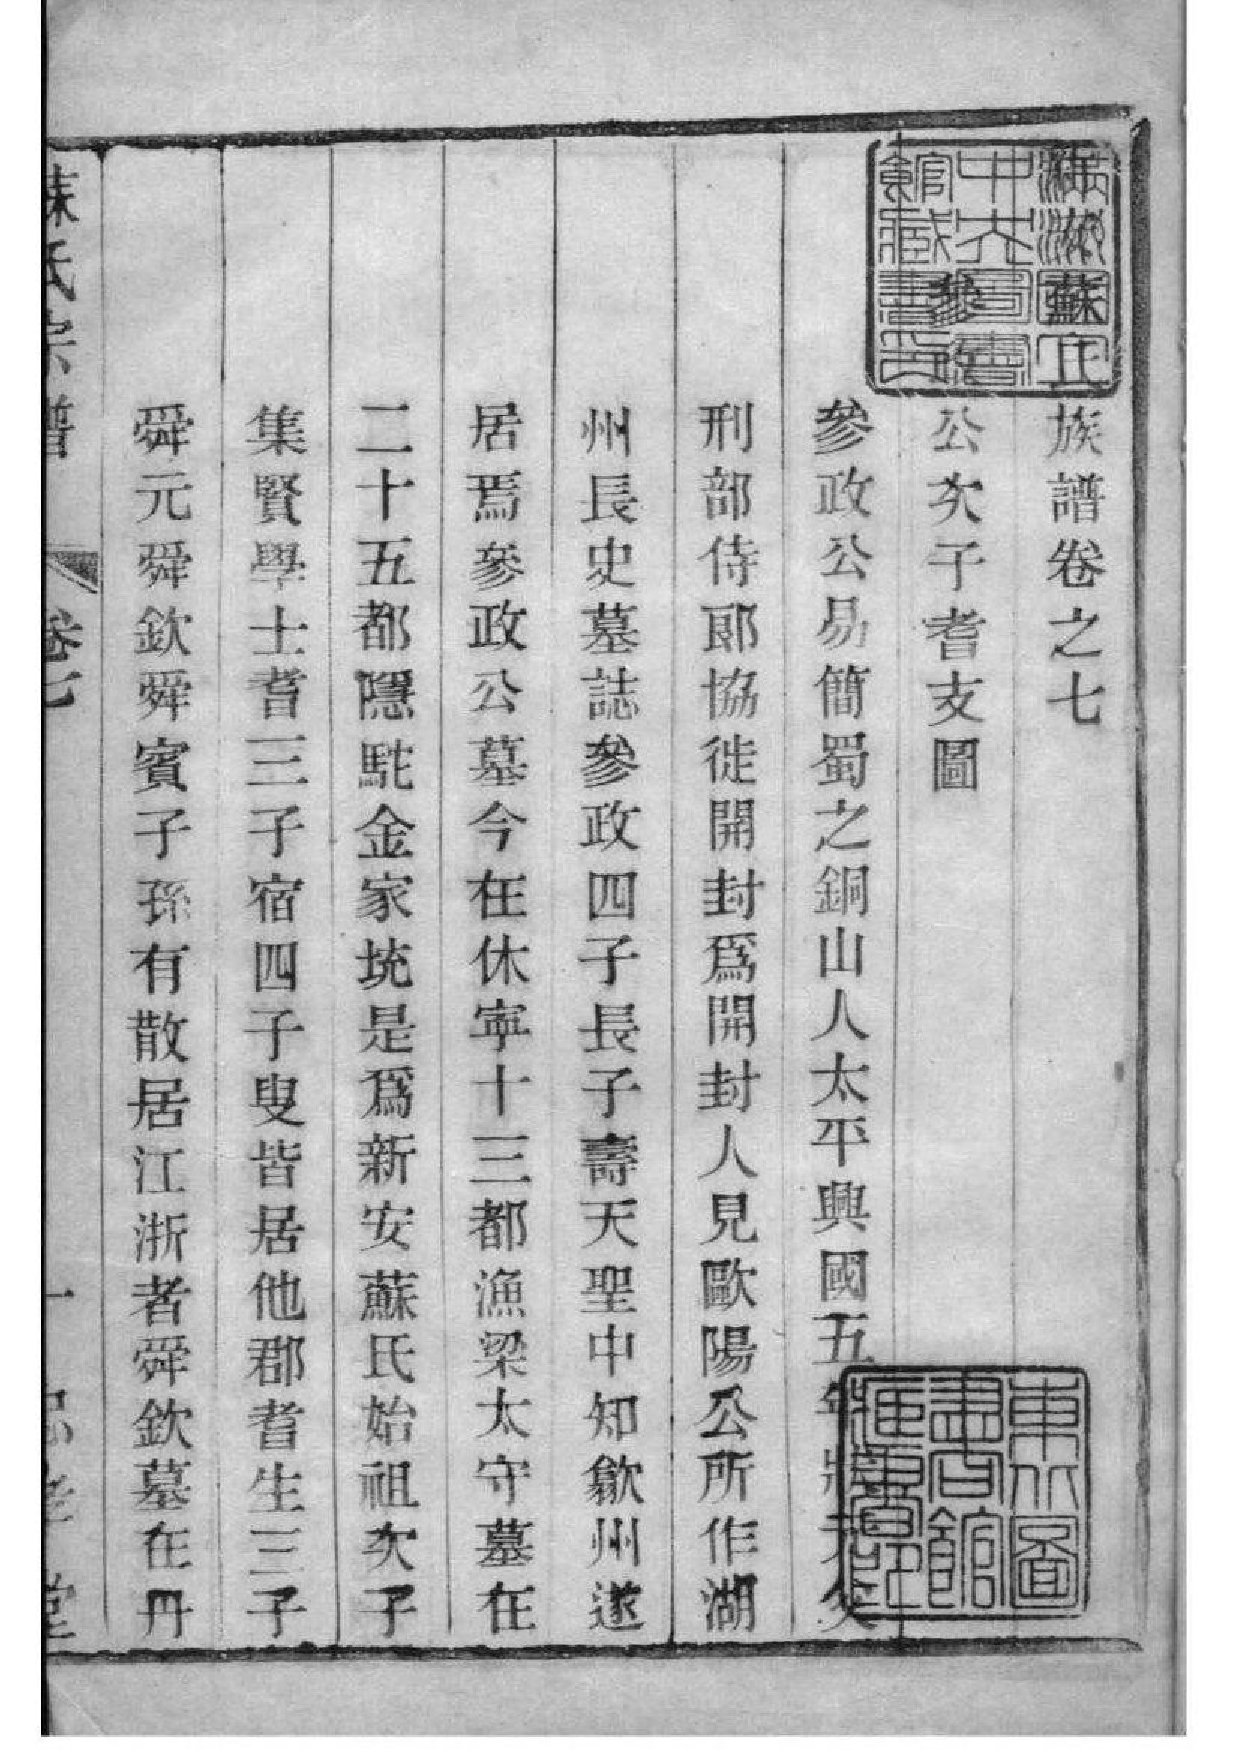 蘇氏族譜卷之七
參政公次子耆支圖
參政公易簡蜀之銅山人太平興國五年狀元父
刑部侍郎協徙開封爲開封人見歐陽公所作湖
州長史墓誌參政四子長子壽天聖中知歙州遂
居焉參政公墓今在休寧十三都漁梁太守墓在
二十五都隱駝金家坑是爲新安蘇氏始祖次子
集賢學士耆三子宿四子叟皆居他郡耆生三子
舜元舜欽舜賓子孫有散居江浙者舜欽墓在丹
蘇氏宗譜
卷七
一
堂
中央圖書
館藏書印
東北圖
書館
藏書印